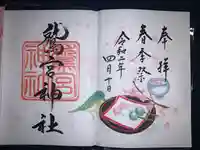 奉拝
春季祭
令和二年
四月十日
鷲宮神社